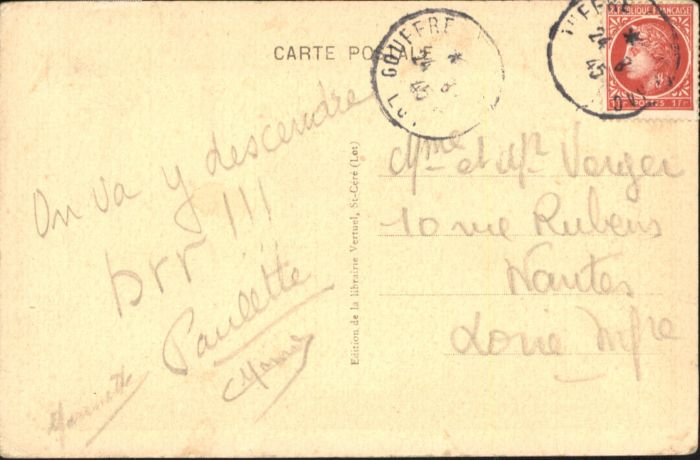 CARTE POSTALE
RÉPUBLIQUE FRANÇAISE
POSTES 1Fr
GOUFFRE
LOT
45
UFFRE
24
45
On va y descendre
brr !!!
Paulette
Marinette
Edition de la librairie Vertuel, St-Céré (Lot)
Mme et Mr Verger
10 rue Rubens
Nantes
Loire Infre